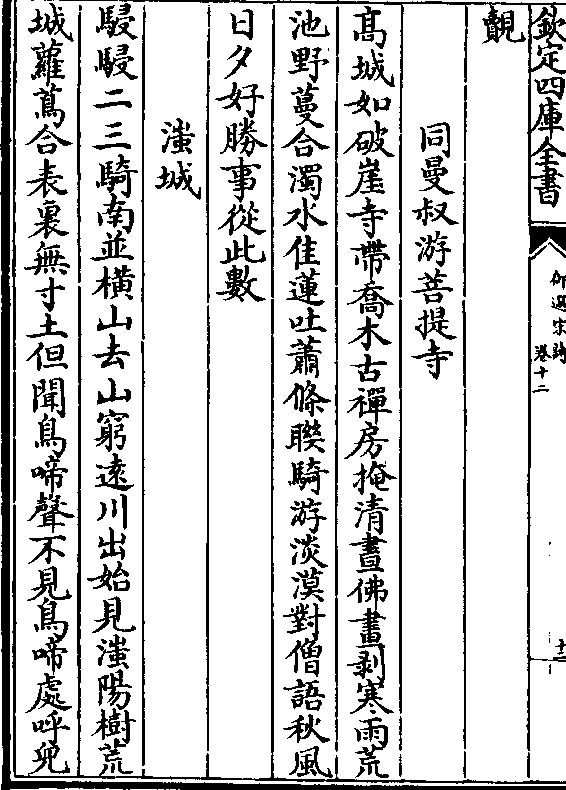 欽定四庫全書
御選宋詩
卷十二
十二
覩
同曼叔游菩提寺
高城如破崖寺帶喬木古禪房掩清晝佛畫剥寒雨荒
池野蔓合濁水佳蓮吐蕭條聯騎游淡漠對僧語秋風
日夕好勝事從此數
滍城
駸駸二三騎南並橫山去山窮遠川出始見滍陽樹荒
城蘿蔦合表裏無寸土但聞鳥啼聲不見鳥啼處呼兒